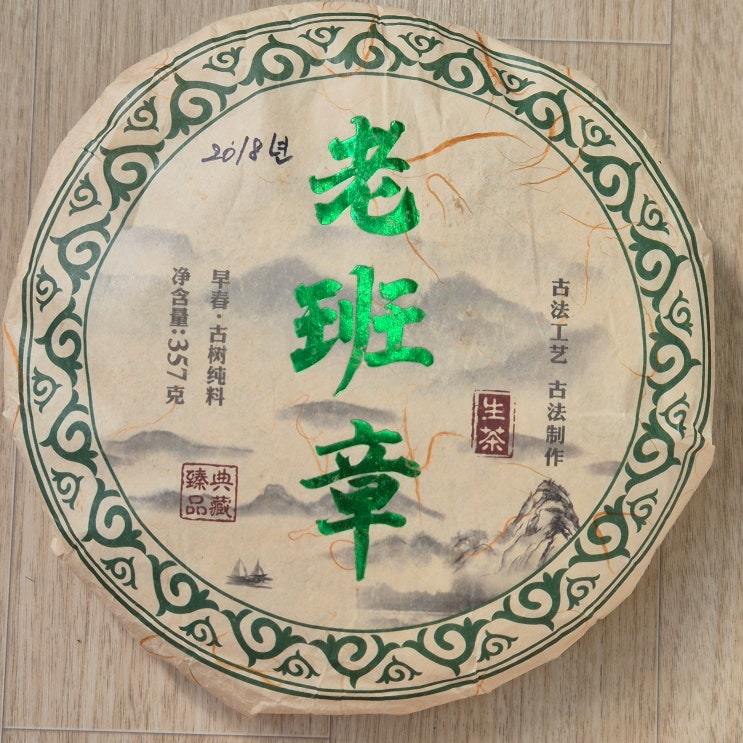 2018년
老班章
古法工艺 古法制作
生茶
早春·古树纯料
净含量:357克
典藏
臻品